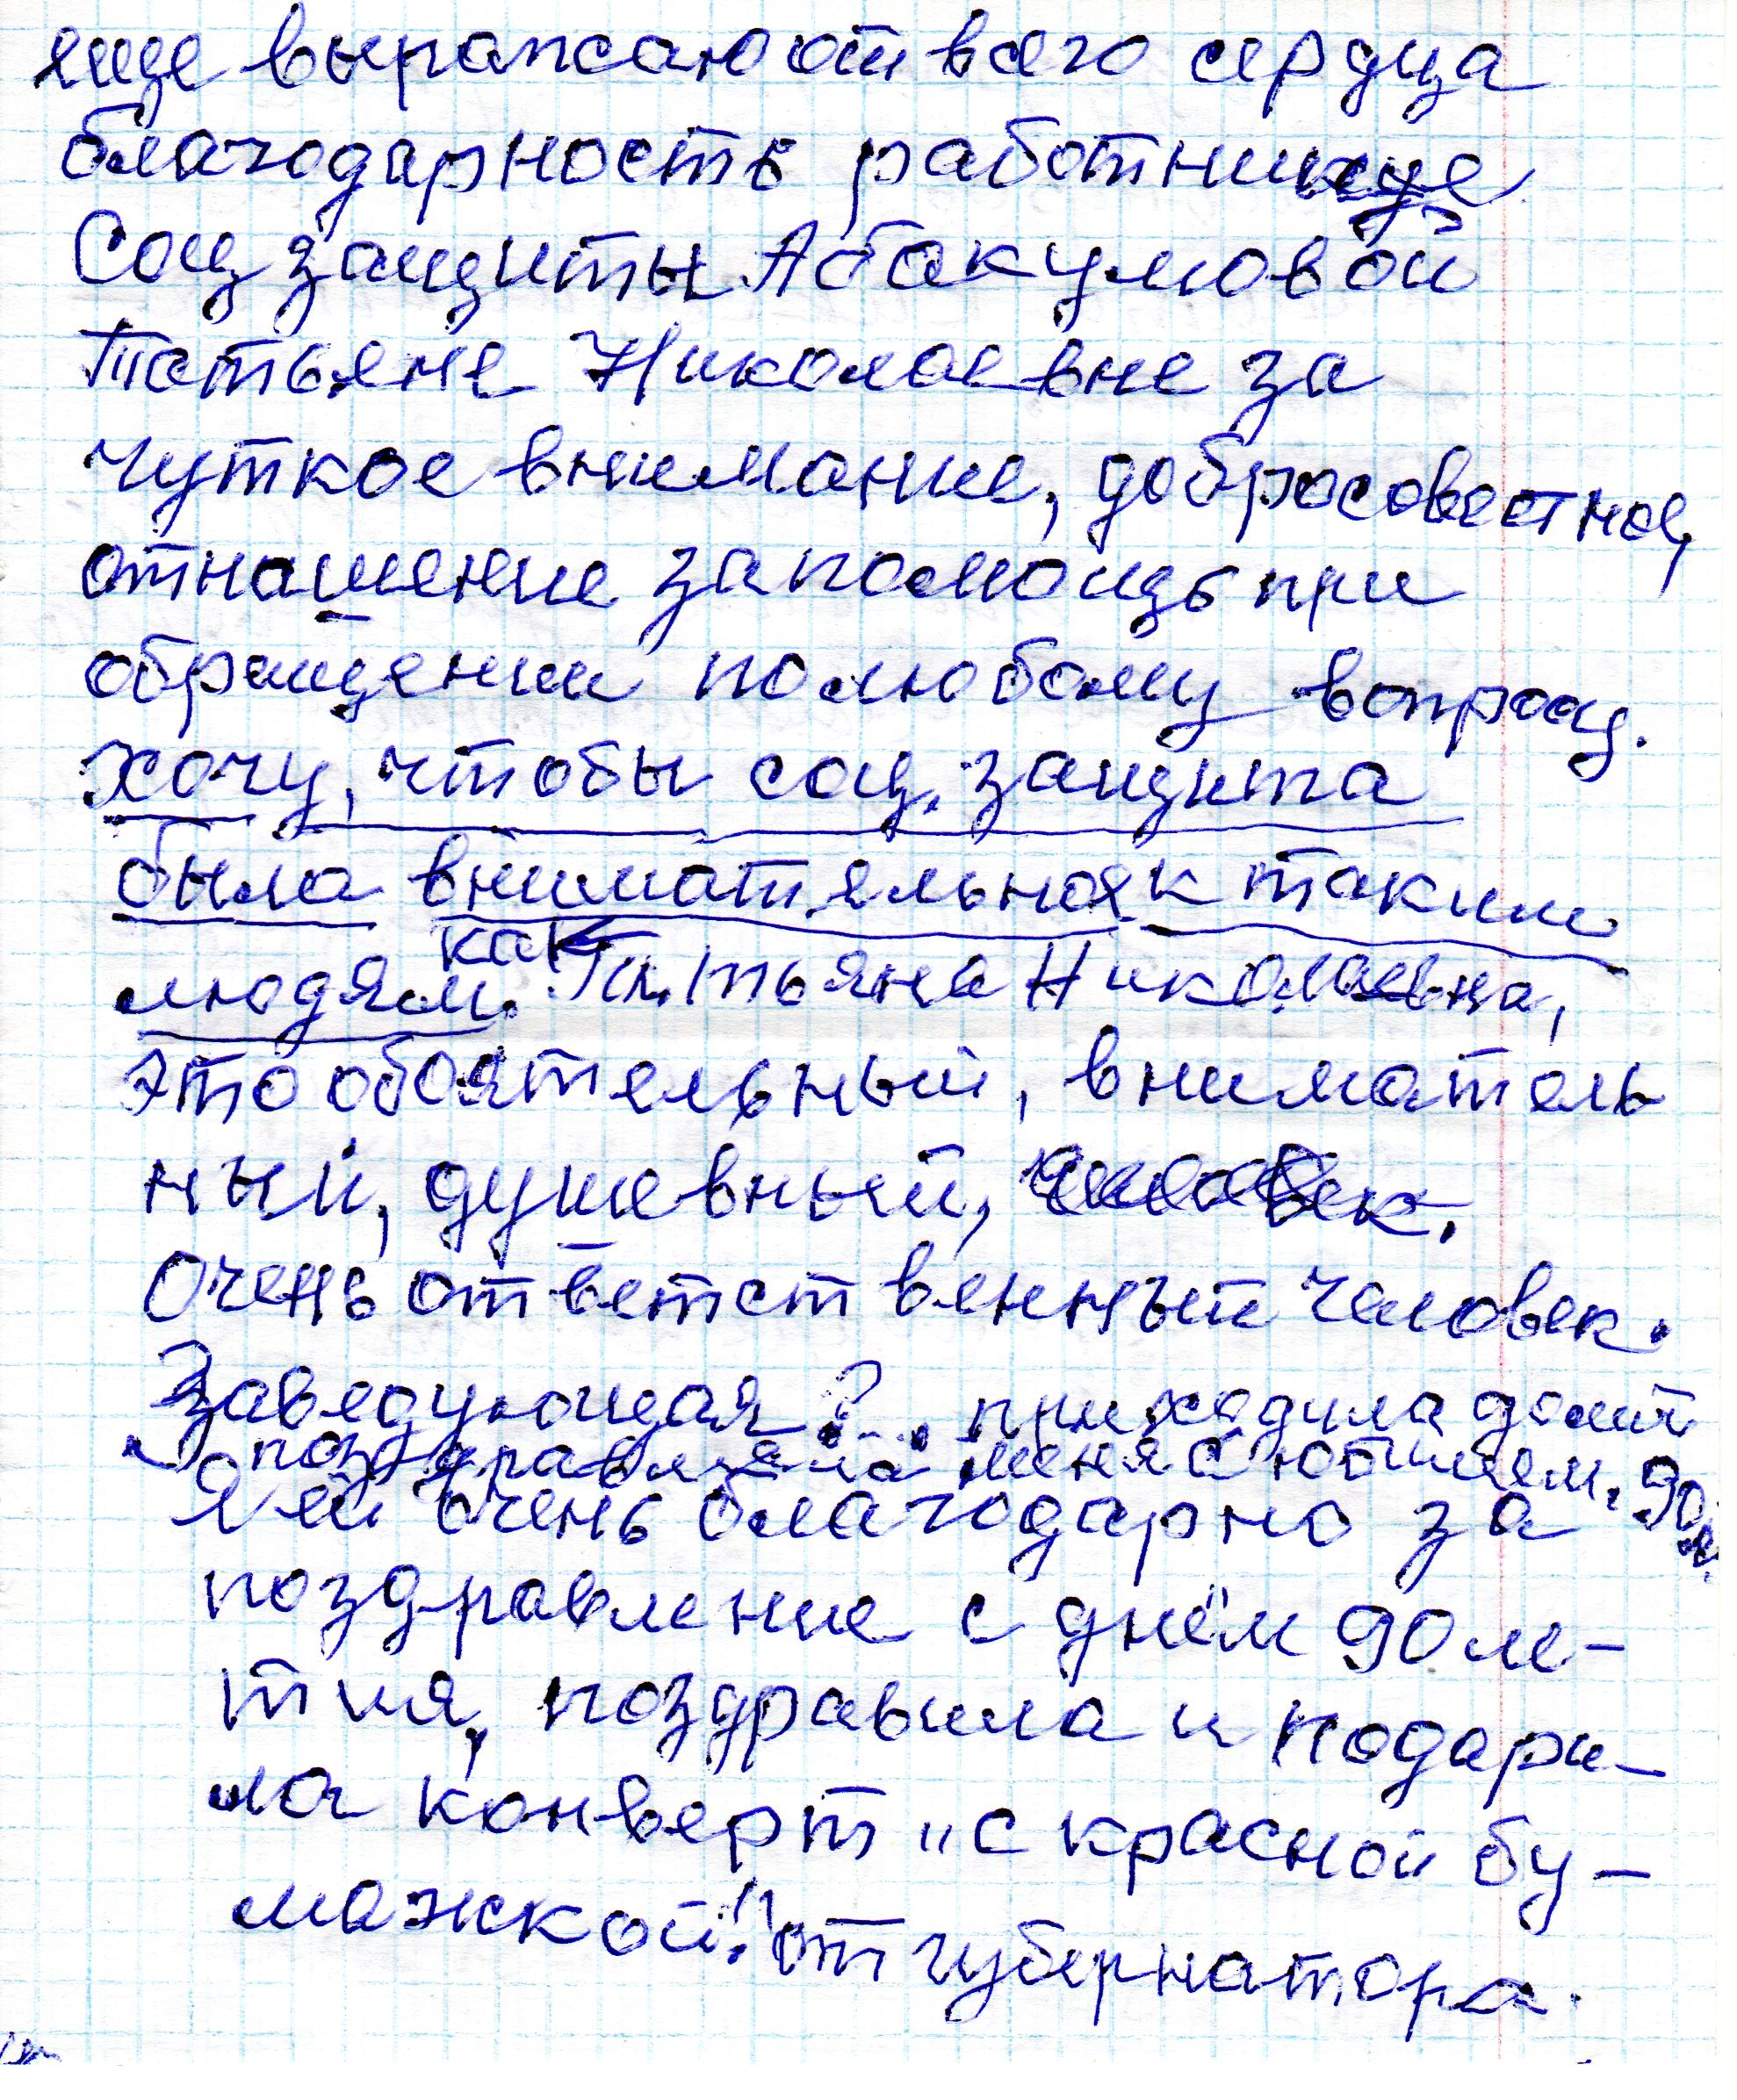 еще выражаю от всего сердца
благодарность работнице
Соц защиты Абакумовой
Татьяне Николаевне за
чуткое внимание, добросовестное,
отношение за помощь при
обращении по любому вопросу.
Хочу, чтобы соц. защита
была внимательная к таким
как
людям. Татьяна Николаевна,
это обоятельный, вниматель
ный, душевный, человек.
Очень ответственный человек.
Заведующая ?... приходила домой
поздравляла меня с юбилеем. 90
Я ей очень благодарна за
поздравление с днём 90 ле-
тия, поздравила и подари-
ла конверт "с красной бу-
мажкой." от губернатора.